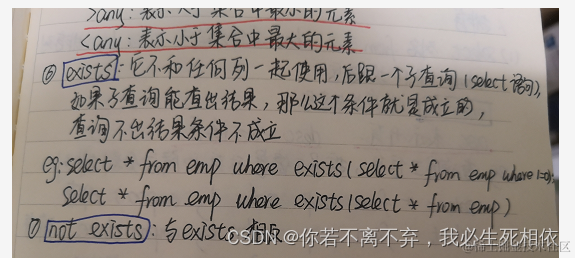 >any：表示大于集合中最小的元素
<any：表示小于集合中最大的元素
⑥ exists：它不和任何列一起使用，后跟一个子查询(select语句)，
如果子查询能查出结果，那么这个条件就是成立的，
查询不出结果条件不成立
eg: select * from emp where exists( select * from emp where 1=0);
select * from emp where exists(select * from emp)
⑦ not exists：与exists相反
CSDN @你若不离不弃，我必生死相依